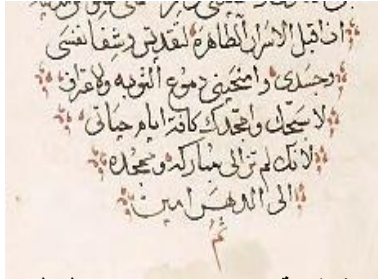 اقبل الاسرار الطاهرة لتقديس وشفا نفسى
وجسدى وامنحينى دموع التوبه والاعتراف
لاسبحك وامجدك كافة ايام حياتى
لانك لم تزالى مباركه وممجده
الى الدهر امين
تم